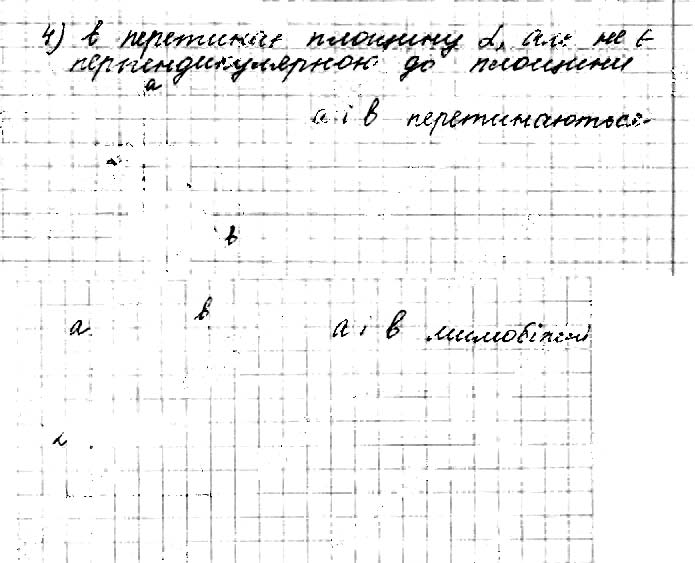 4) в перетинає площину α, але не є
перпендикулярною до площини
a
a і в перетинаються
α
в
a
в
a і в мимобіжні
α